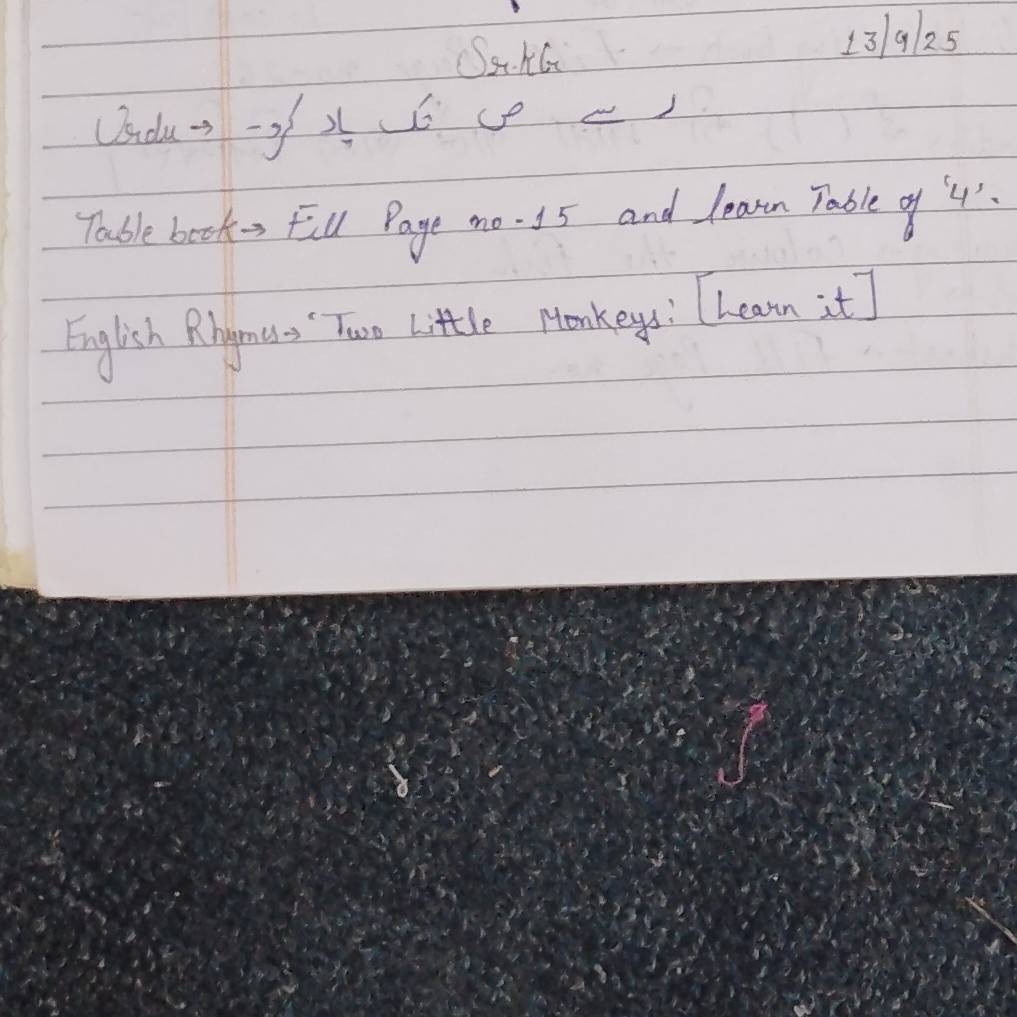 Sr.KG 13/9/25
Urdu → ر سے ص تک یاد کرو-
Table book → Fill Page no-15 and learn Table of '4'.
English Rhymes → "Two Little Monkeys: [Learn it]